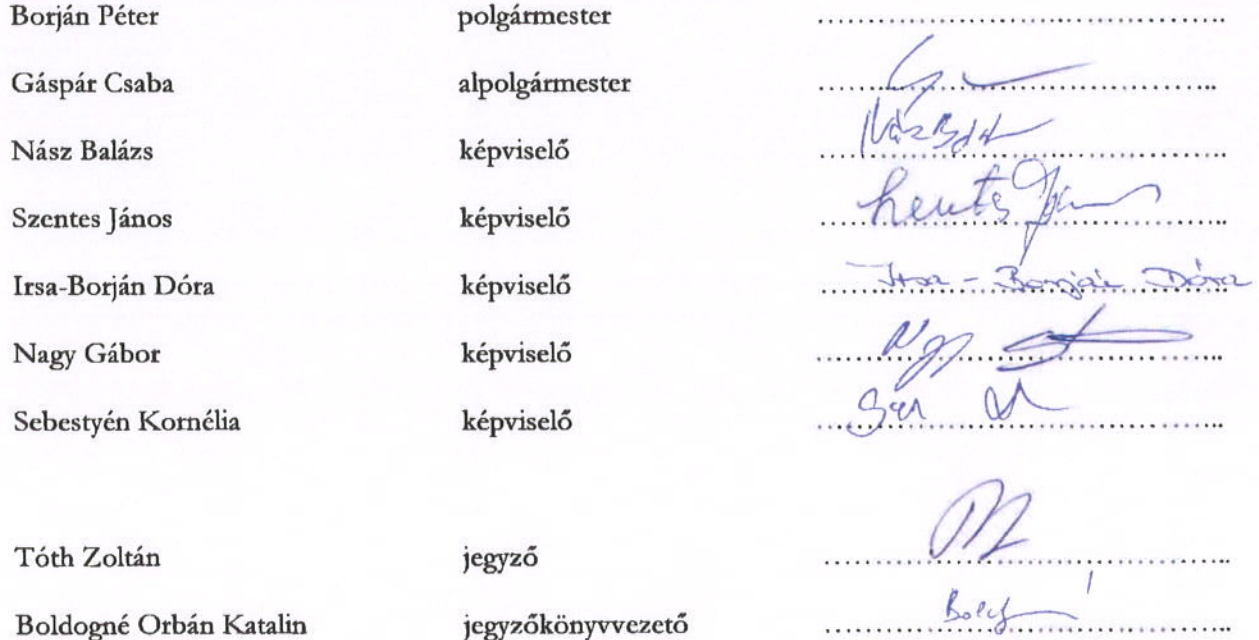 Borján Péter polgármester ..........
Gáspár Csaba alpolgármester ..........
Nász Balázs képviselő ..........
Szentes János képviselő ..........
Irsa-Borján Dóra képviselő Irsa - Borján Dóra
Nagy Gábor képviselő ..........
Sebestyén Kornélia képviselő ..........
Tóth Zoltán jegyző ..........
Boldogné Orbán Katalin jegyzőkönyvvezető ..........